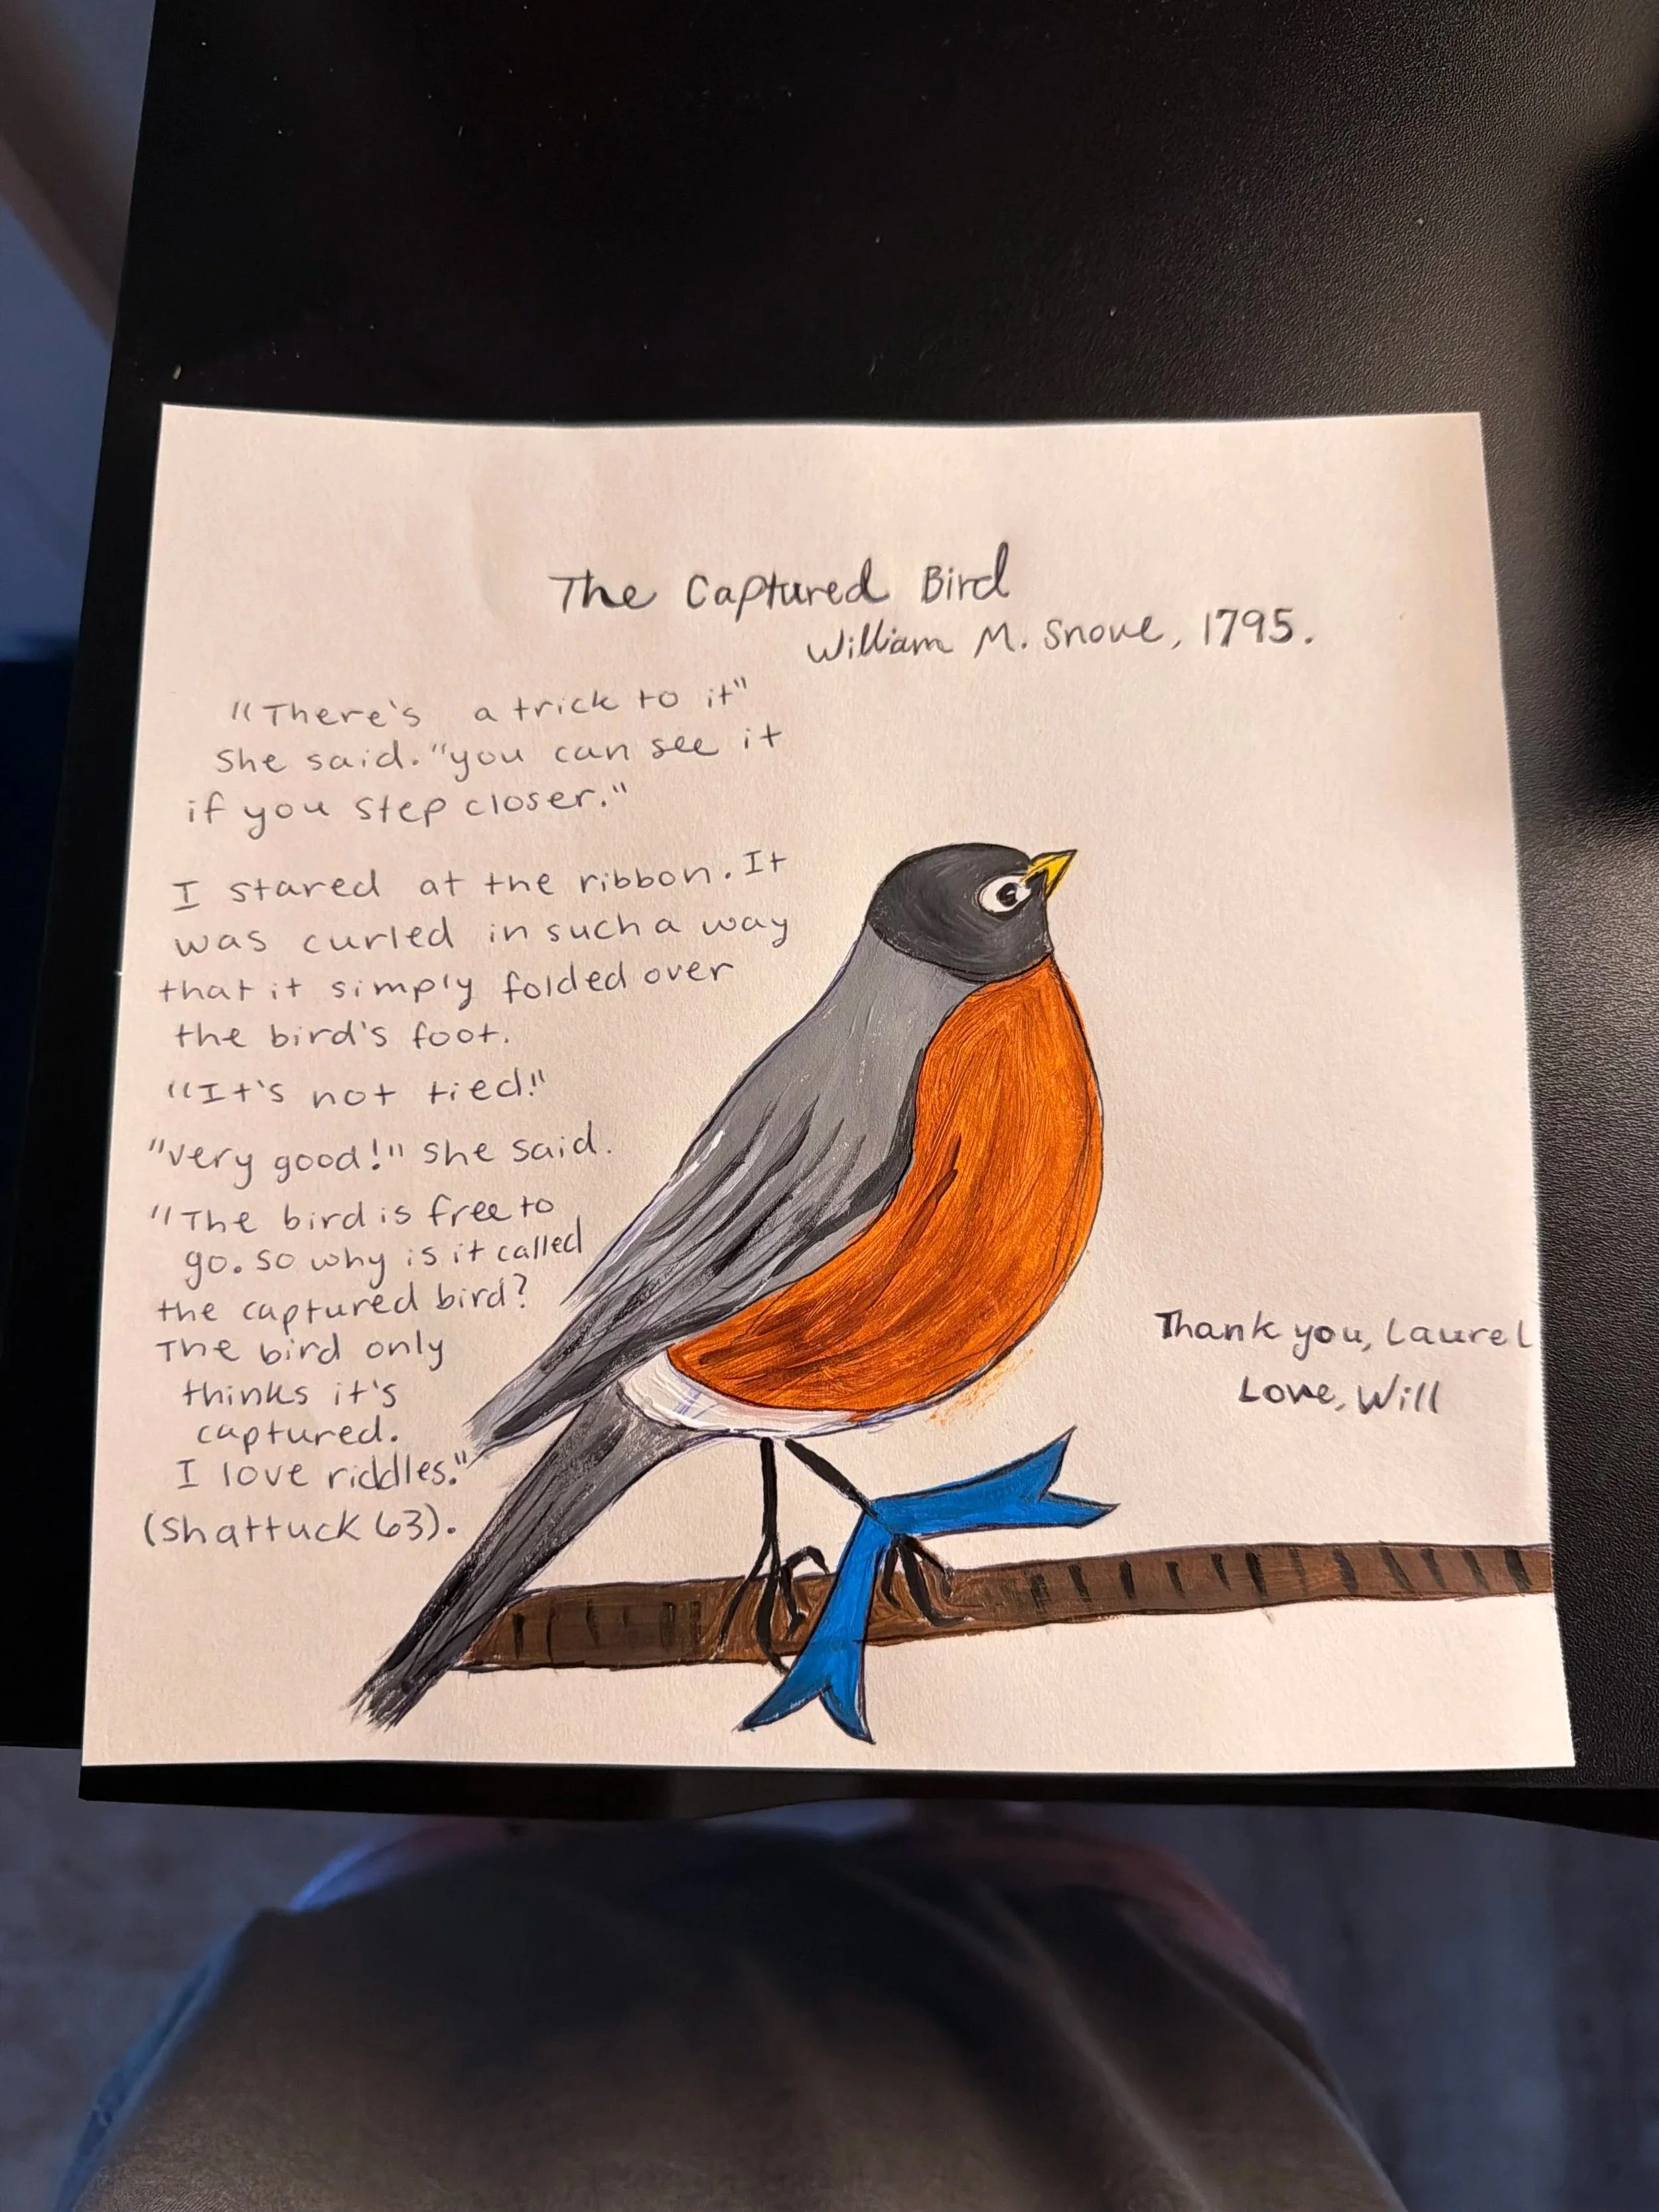 The Captured Bird
William M. Snove, 1795.
"There's a trick to it"
She said. "you can see it
if you step closer."
I stared at the ribbon. It
was curled in such a way
that it simply folded over
the bird's foot.
"It's not tied!"
"very good!" she said.
"The bird is free to
go. So why is it called
the captured bird?
The bird only
thinks it's
captured.
I love riddles."
(Shattuck 63).
Thank you, Laurel
Love, Will